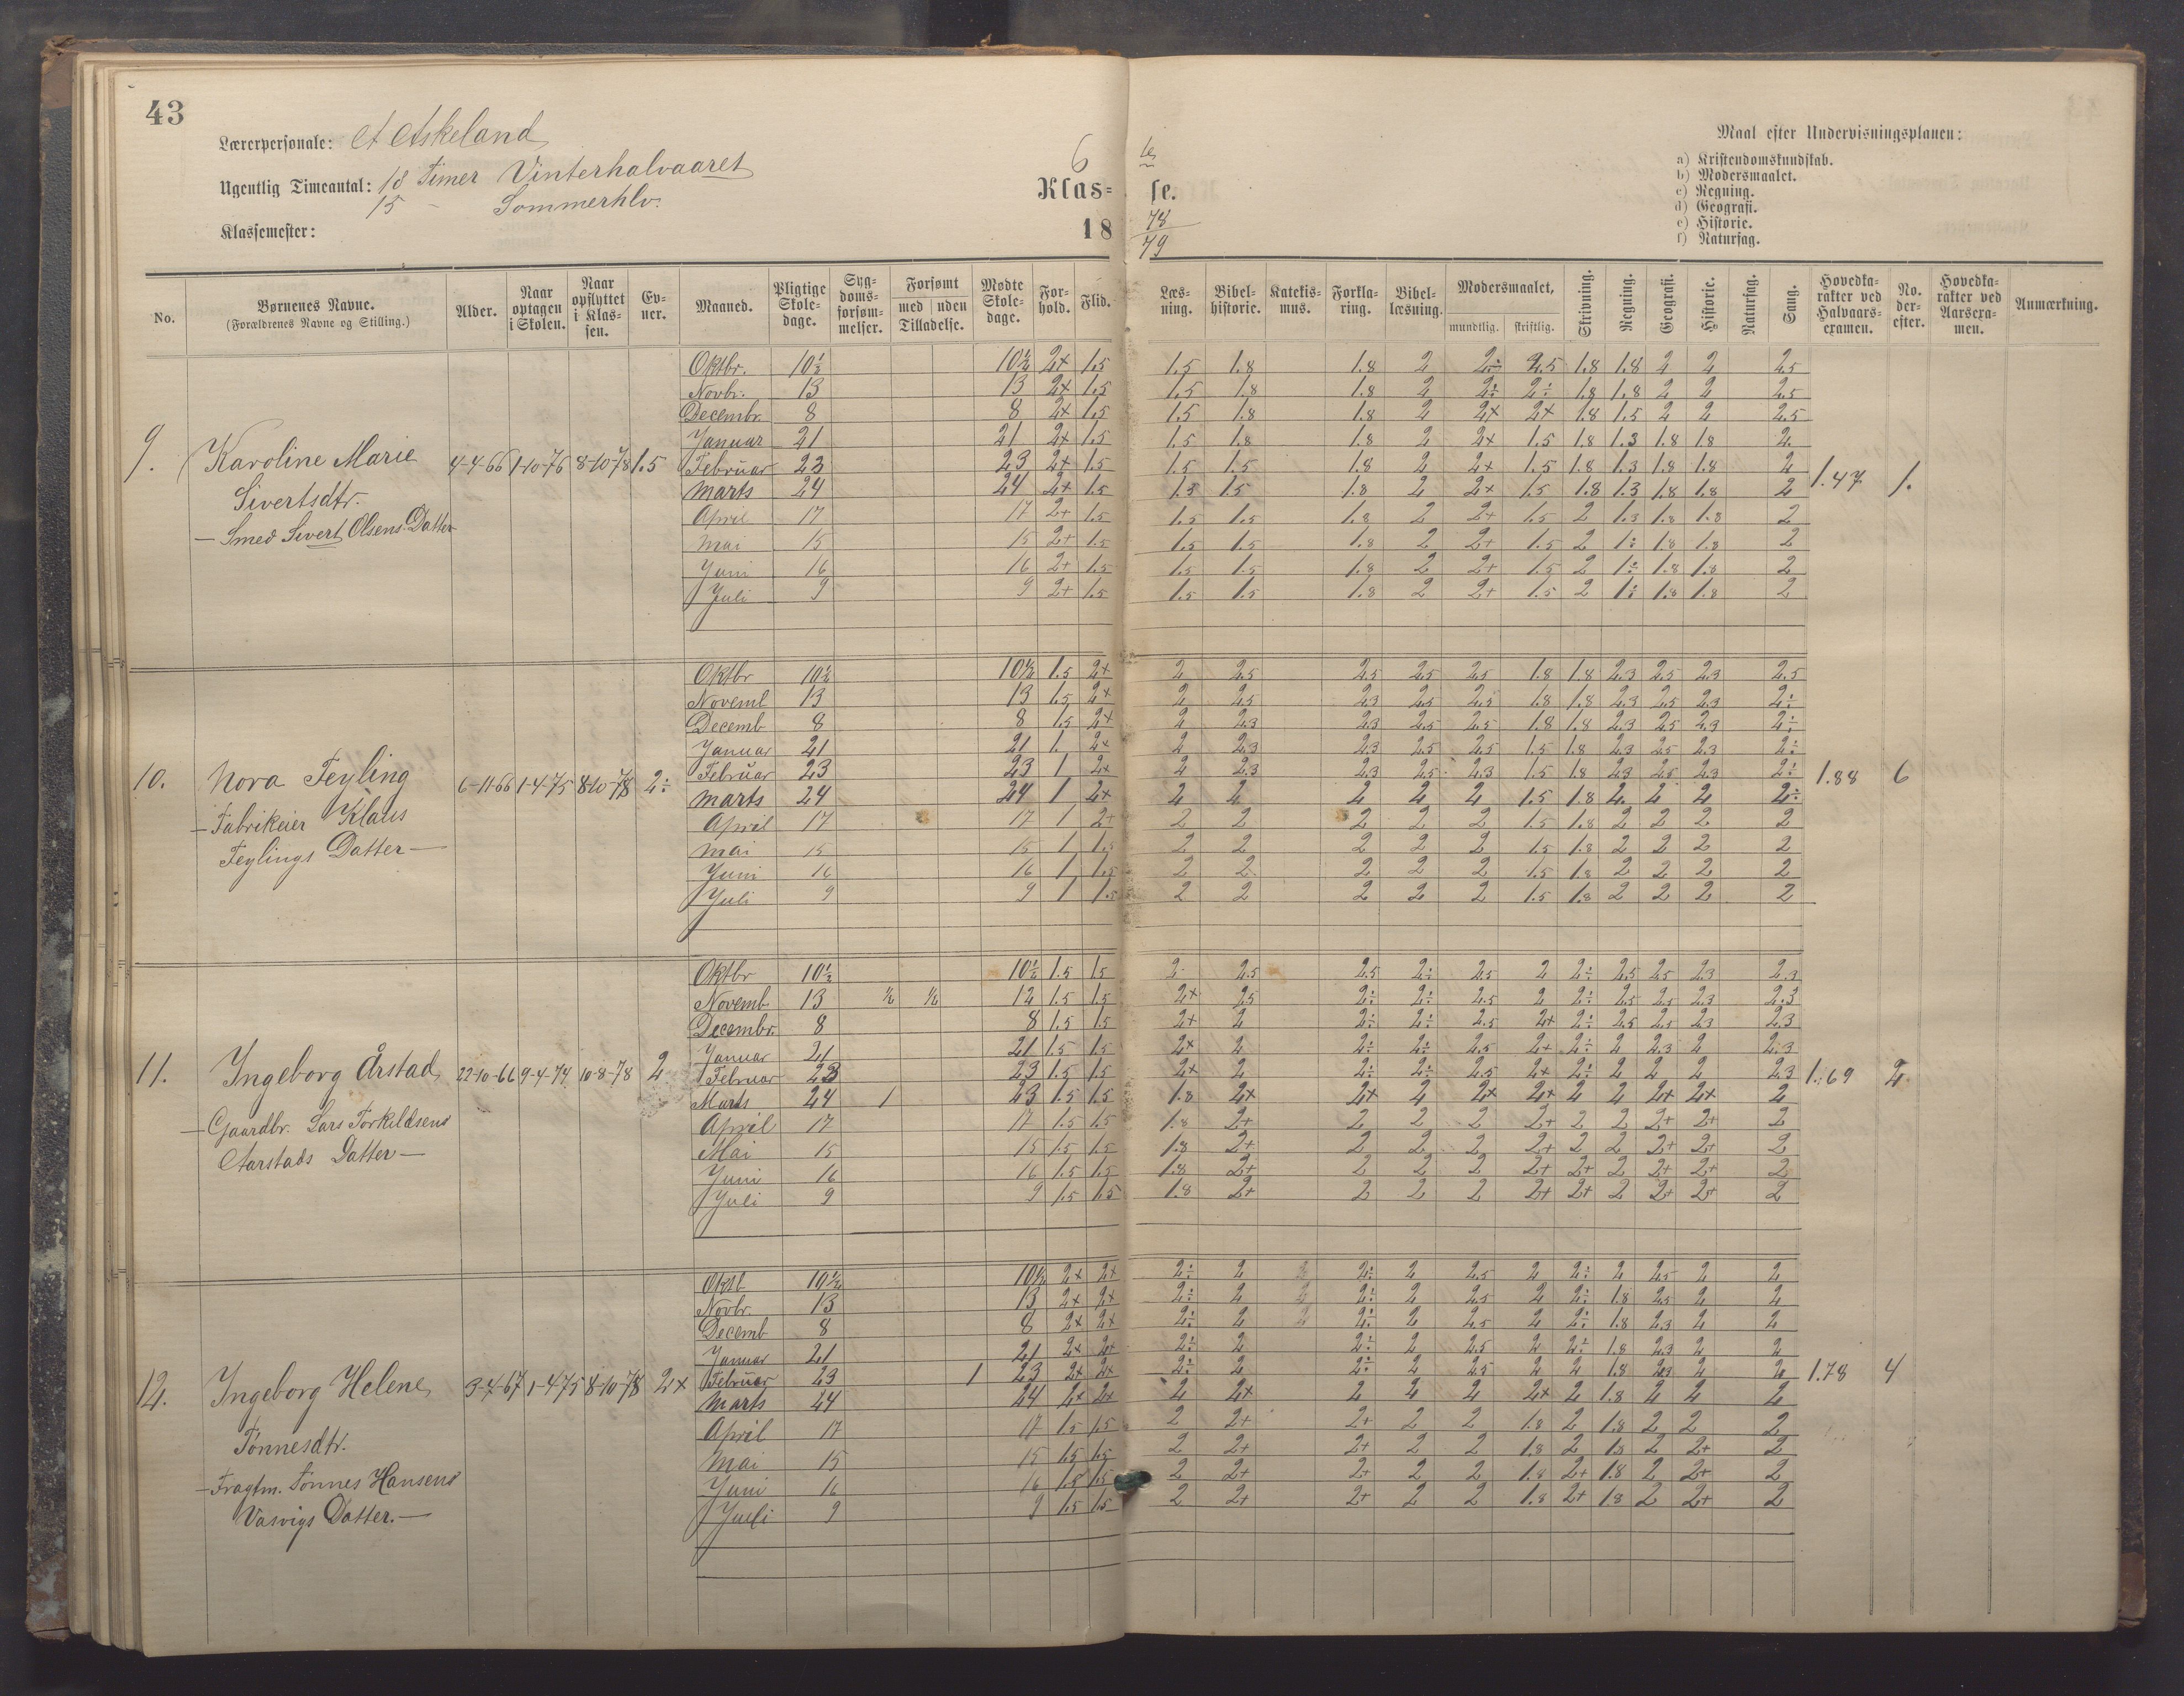 43
Lærerpersonale: A Askeland
Ugentlig Timeantal: 18 Timer Vinterhalvaaret
15 - Sommerhlv.
Klassemester:
6 te
Klas- se.
18 78/79
Maal efter Undervisningsplanen:
a) Kristendomskundskab.
b) Modersmaalet.
c) Regning.
d) Geografi.
e) Historie.
f) Naturfag.
No. | Børnenes Navne. (Forældrenes Navne og Stilling.) | Alder. | Naar optagen i Skolen. | Naar opflyttet i Klassen. | Evner. | Maaned. | Pligtige Skoledage. | Sygdomsforsømmelser. | Forsømt med | uden Tilladelse. | Mødte Skoledage. | Forhold. | Flid. | Læsning. | Bibelhistorie. | Katekismus. | Forklaring. | Bibellæsning. | Modersmaalet, mundtlig. | skriftlig. | Skrivning. | Regning. | Geografi. | Historie. | Naturfag. | Sang. | Hovedkarakter ved Halvaarsexamen. | No. derefter. | Hovedkarakter ved Aarsexamen. | Anmærkning.
9. Karoline Marie Sivertsdtr. - Smed Sivert Olsens Datter 4-4-66 1-10-76 8-10-78 1.5
Oktbr. 10½ 10½ 2+ 1.5 1.5 1.8 1.8 2 2÷ 2.5 1.8 1.8 2 2 2.5
Novbr. 13 13 2+ 1.5 1.5 1.8 1.8 2 2÷ 2÷ 1.8 1.8 2 2 2.5
Decembr. 8 8 2+ 1.5 1.5 1.8 1.8 2 2+ 2+ 1.8 1.5 2 2 2.5
Januar 21 21 2+ 1.5 1.5 1.8 1.8 2 2+ 1.5 1.8 1.3 1.8 1.8 2
Februar 23 23 2+ 1.5 1.5 1.5 1.8 2 2+ 1.5 1.8 1.3 1.8 1.8 2
Marts 24 24 2+ 1.5 1.5 1.5 1.8 2 2+ 1.5 1.8 1.3 1.8 1.8 2 1.47 1.
April 17 17 2+ 1.5 1.5 1.5 1.8 2 2+ 1.5 2 1.3 1.8 1.8 2
Mai 15 15 2+ 1.5 1.5 1.5 1.8 2 2+ 1.5 2 1÷ 1.8 1.8 2
Juni 16 16 2+ 1.5 1.5 1.5 1.8 2 2+ 1.5 2 1÷ 1.8 1.8 2
Juli 9 9 2+ 1.5 1.5 1.5 1.8 2 2+ 1.5 2 1÷ 1.8 1.8 2
10. Nora Feyling - Fabrikeier Klaus Feylings Datter - 6-11-66 1-4-75 8-10-78 2÷
Oktbr 10½ 10½ 1.5 2+ 2 2.5 2.5 2.5 2.5 1.8 1.8 2.3 2.5 2.3 2.5
Novemb 13 13 1.5 2+ 2 2.5 2.3 2.5 2.5 1.8 1.8 2.3 2.5 2.3 2÷
Decemb 8 8 1.5 2+ 2 2.3 2.3 2.5 2.5 1.8 1.8 2.3 2.5 2.3 2÷
Januar 21 21 1. 2+ 2 2.3 2.3 2.5 2.5 1.5 1.8 2.3 2.5 2.3 2÷
Februar 23 23 1 2+ 2 2.3 2.3 2.5 2.3 1.5 1.8 2.3 2.5 2.3 2÷
Marts 24 24 1 2+ 2 2 2 2 2 1.5 1.8 2 2 2 2÷ 1.88 6
April 17 17 1 2+ 2 2 2 2 2 1.5 1.8 2 2 2 2
Mai 15 15 1 1.5 2 2 2 2 2 1.5 1.8 2 2 2 2
Juni 16 16 1 1.5 2 2 2 2 2 1.5 1.8 2 2 2 2
Juli 9 9 1 1.5 2 2 2 2 2 1.5 1.8 2 2 2 2
11. Ingeborg Årstad - Gaardbr. Lars Torkildsens Aarstads Datter - 22-10-66 9-4-74 10-8-78 2
Oktbr 10½ 10½ 1.5 1.5 2 2.5 2.5 2÷ 2.5 2 2÷ 2.5 2.5 2.3 2.3
Novemb 13 ½ ½ 12 1.5 1.5 2+ 2.5 2÷ 2÷ 2.5 2 2÷ 2.5 2.5 2.3 2.3
Decembr. 8 8 1.5 1.5 2+ 2 2÷ 2÷ 2.5 2+ 2÷ 2.5 2.5 2.3 2.3
Januar 21 21 1.5 1.5 2+ 2 2÷ 2÷ 2.5 2+ 2÷ 2 2.3 2 2.3
Februar 23 23 1.5 1.5 2+ 2 2÷ 2÷ 2.5 2+ 2÷ 2 2 2 2.3 1.69 2
Marts 24 1 23 1.5 1.5 1.8 2+ 2+ 2 2+ 2+ 2 2 2+ 2+ 2
April 17 17 1.5 1.5 1.8 2+ 2 2 2 2+ 2 2 2+ 2+ 2
Mai 15 15 1.5 1.5 1.8 2+ 2 2 2 2+ 2 2 2+ 2+ 2
Juni 16 16 1.5 1.5 1.8 2+ 2 2 2 2+ 2+ 2 2+ 2+ 2
Juli 9 9 1.5 1.5 1.8 2+ 2 2 2 2+ 2+ 2 2+ 2+ 2
12. Ingeborg Helene Tønnesdtr. - Fragtm. Tønnes Hansens Vasvigs Datter. - 3-4-67 1-4-75 8-10-78 2+
Oktb 10½ 10½ 2+ 2+ 2÷ 2 2 2÷ 2 2.5 2 2÷ 2 2.5 2 2
Novbr. 13 13 2+ 2+ 2÷ 2 2 2÷ 2 2.5 2 2÷ 1.8 2.5 2 2
Decemb 8 8 2+ 2+ 2÷ 2 2 2÷ 2 2.5 2 2÷ 1.8 2.3 2 2
Januar 21 21 2+ 2+ 2÷ 2 2÷ 2 2.5 2 2÷ 1.8 2.3 2 2
Februar 23 1 23 2+ 2+ 2÷ 2 2÷ 2 2.5 2 2 1.8 2.3 2 2 1.78 4
Marts 24 24 2+ 2+ 2 2+ 2 2 2 2+ 2 1.8 2 2 2
April 17 17 1.5 1.5 2 2+ 2+ 2 2 1.8 2 1.8 2 2 2
Mai 15 15 1.5 1.5 2 2+ 2+ 2 2 1.8 2 1.8 2 2+ 2
Juni 16 16 1.5 1.5 2 2+ 2+ 2 2 1.8 2+ 1.8 2 2+ 2
Juli 9 9 1.5 1.5 2 2+ 2+ 2 2 1.8 2+ 1.8 2 2+ 2